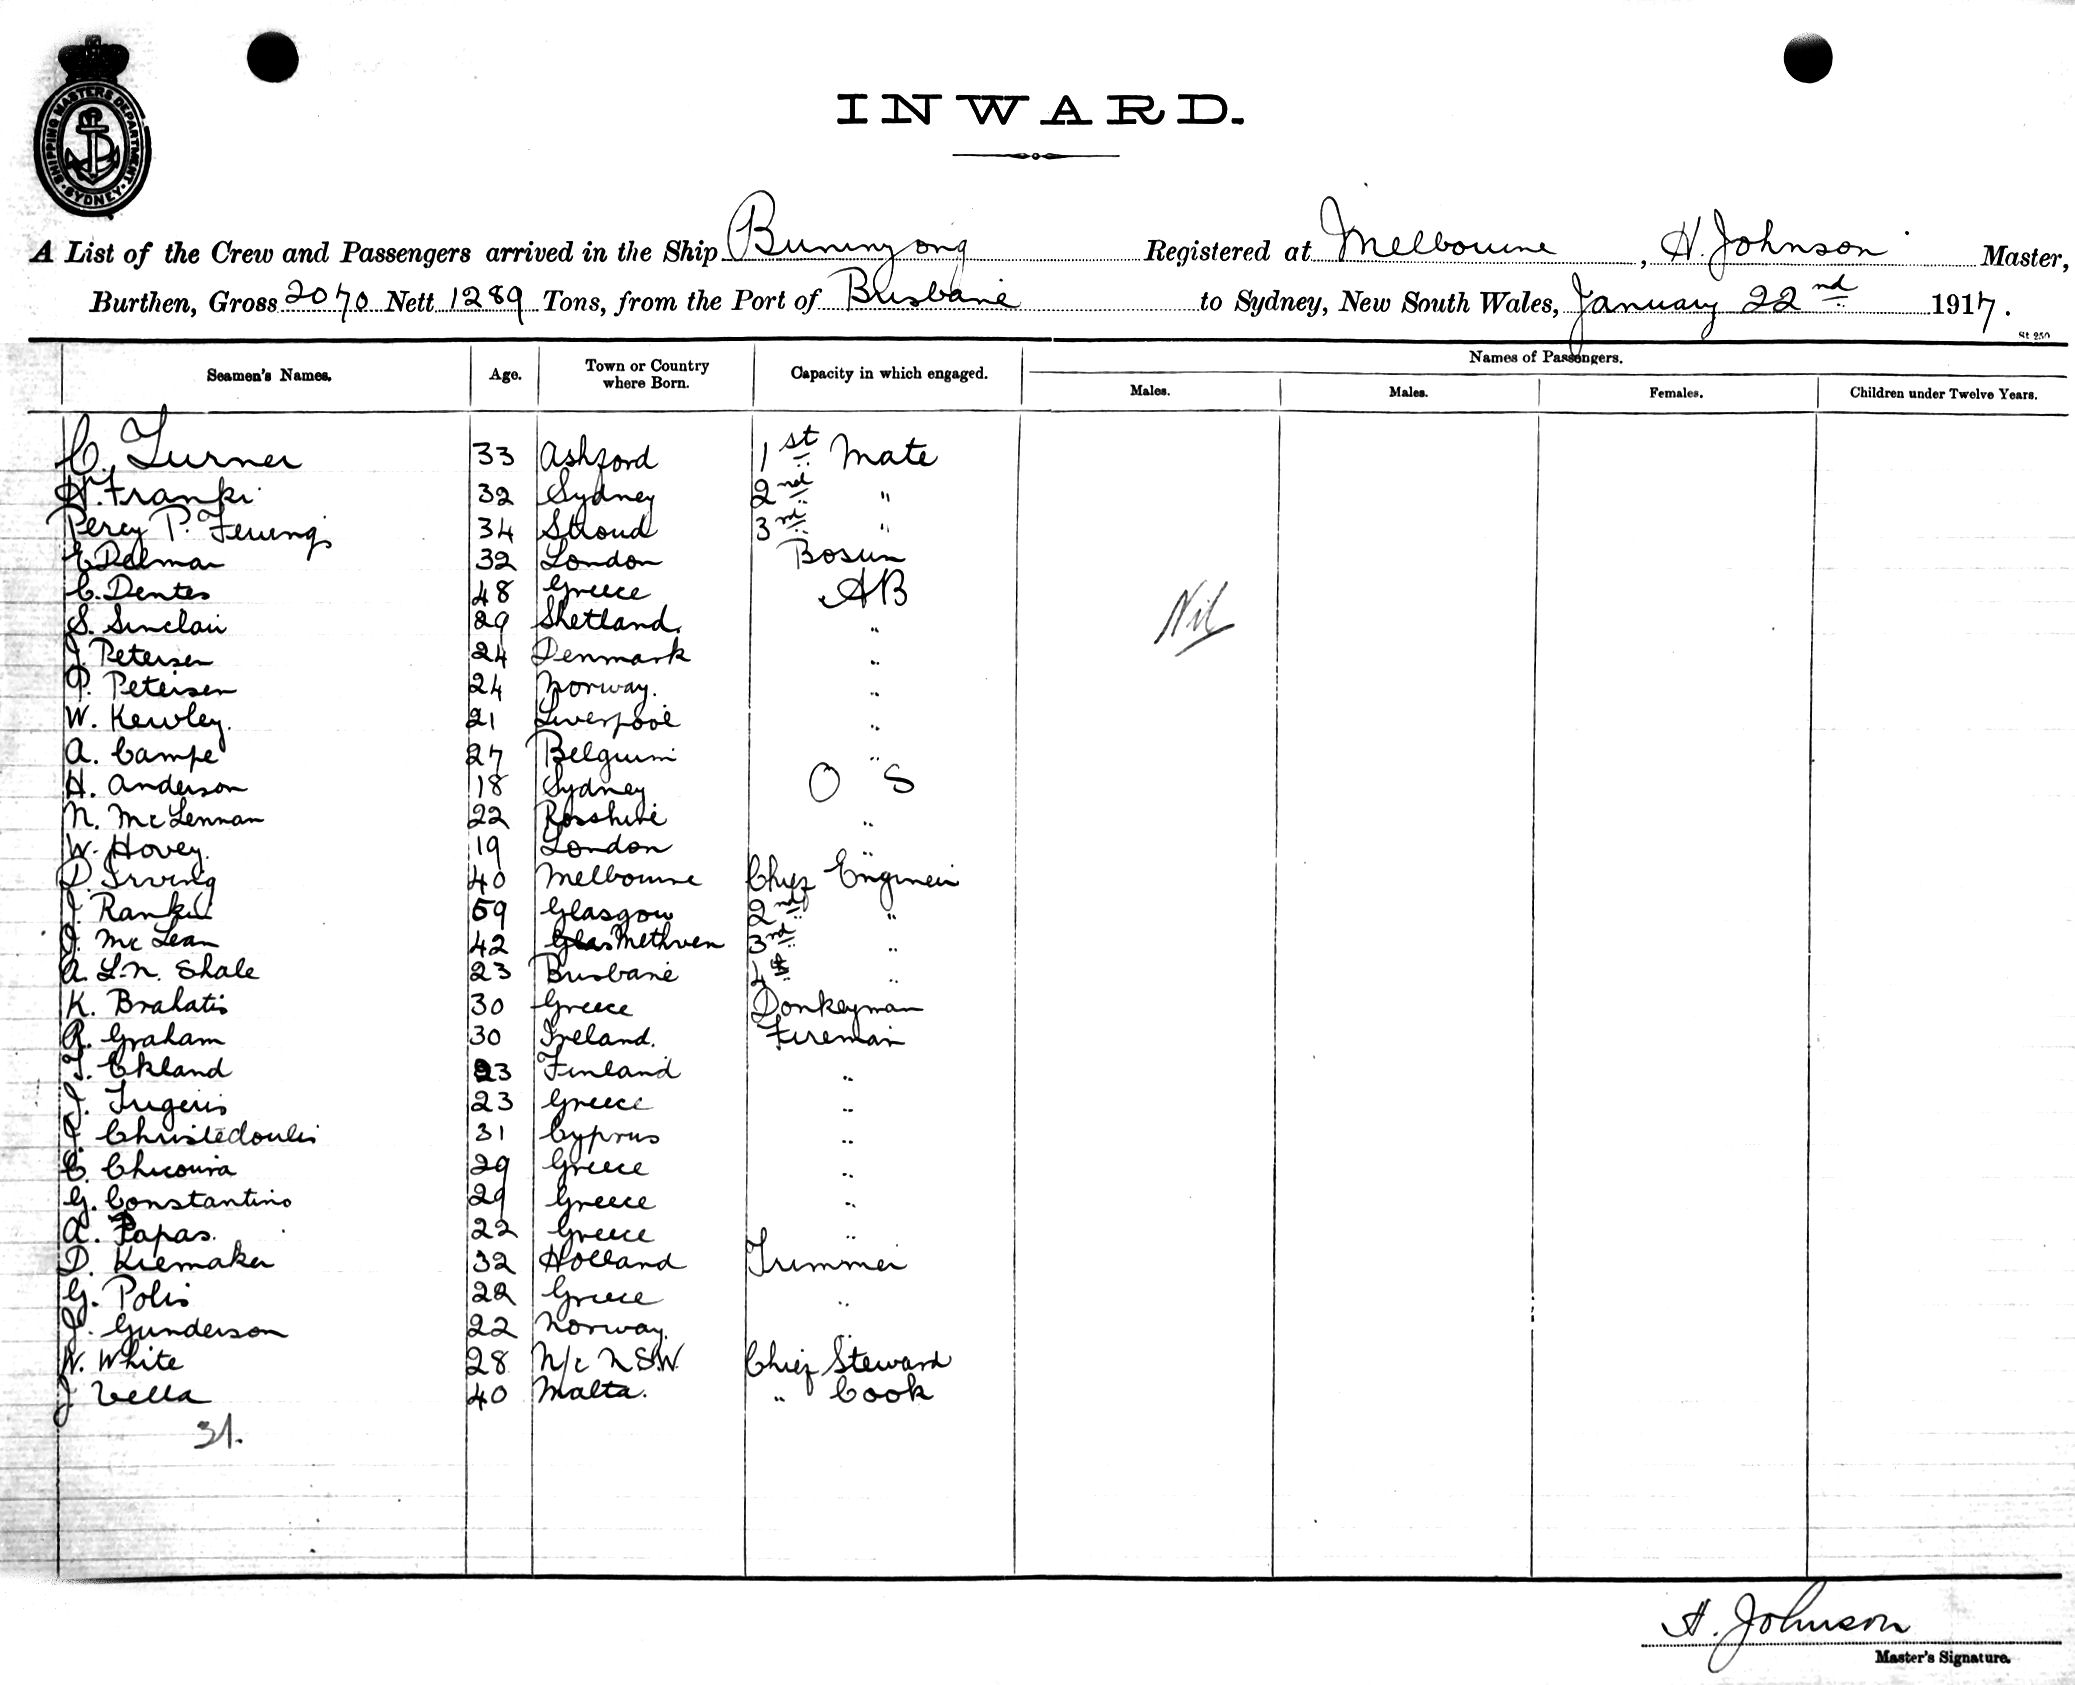 SHIPPING MASTERS DEPARTMENT. SYDNEY
INWARD.
A List of the Crew and Passengers arrived in the Ship Buninyong Registered at Melbourne, H. Johnson Master,
Burthen, Gross 2070 Nett 1289 Tons, from the Port of Brisbane to Sydney, New South Wales, January 22nd 1917.
St 250
Seamen's Names. Age. Town or Country where Born. Capacity in which engaged. Names of Passengers.
Males. Males. Females. Children under Twelve Years.
C. Turner 33 Ashford 1st Mate
H. Franki 32 Sydney 2nd "
Percy P. Fewings 34 Stroud 3rd "
E Delmar 32 London Bosun
C. Dentes 48 Greece AB
S. Sinclair 29 Shetland. "
Nil
J. Petersen 24 Denmark "
P. Petersen 24 Norway. "
W. Kewley. 21 Liverpool "
A. Campe 27 Belgium "
H. Anderson 18 Sydney O S
N. McLennan 22 Rosshire "
W. Hovey. 19 London "
D. Irving 40 Melbourne Chief Engineer
J. Rankin 59 Glasgow 2nd "
J. McLean 42 Glas Methven 3rd "
A. L.N. Shale 23 Brisbane 4th "
K. Brahatis 30 Greece Donkeyman
R. Graham 30 Ireland. Fireman
T. Ekland 23 Finland "
J. Tugeris 23 Greece "
J Christedoulis 31 Cyprus "
C. Chicoura 29 Greece "
G. Constantino 29 Greece "
A. Papas. 22 Greece "
D. Kiemaker 32 Holland Trimmer
G. Polis 22 Greece "
J. Gunderson 22 Norway. "
W. White 28 N/c N.S.W. Chief Steward
J Vella 40 Malta. " Cook
31.
H. Johnson
Master's Signature.